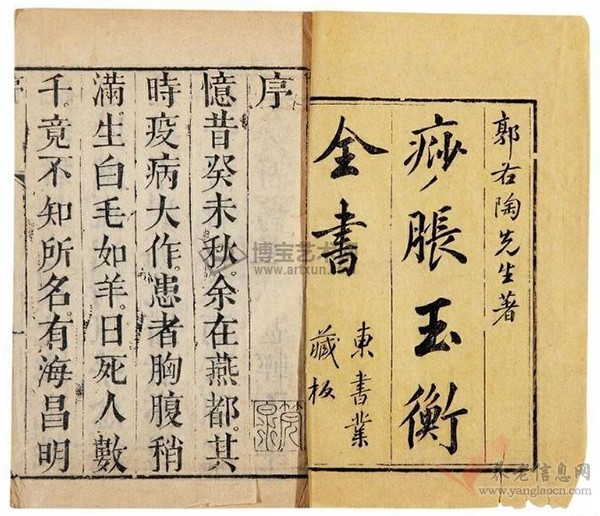 郭右陶先生著
痧脹玉衡
全書
東書業
藏板
序
憶昔癸未秋。余在燕都。其
時疫病大作。患者胸腹稍
滿生白毛如羊。日死人數
千。竟不知所名。有海昌明
博宝艺术网
www.artxun.com
养老信息网
www.yanglaocn.com